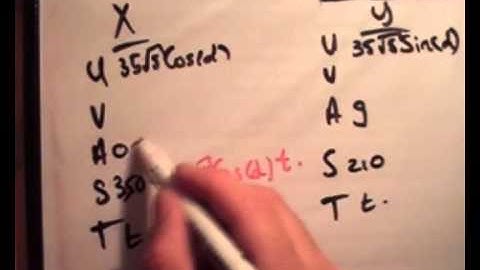 X
U 35√5 Cos(α)
V
A 0
S 350
Cos(α) t.
T t
y
U 35√5 Sin(α)
V
A g
S 210
T t.